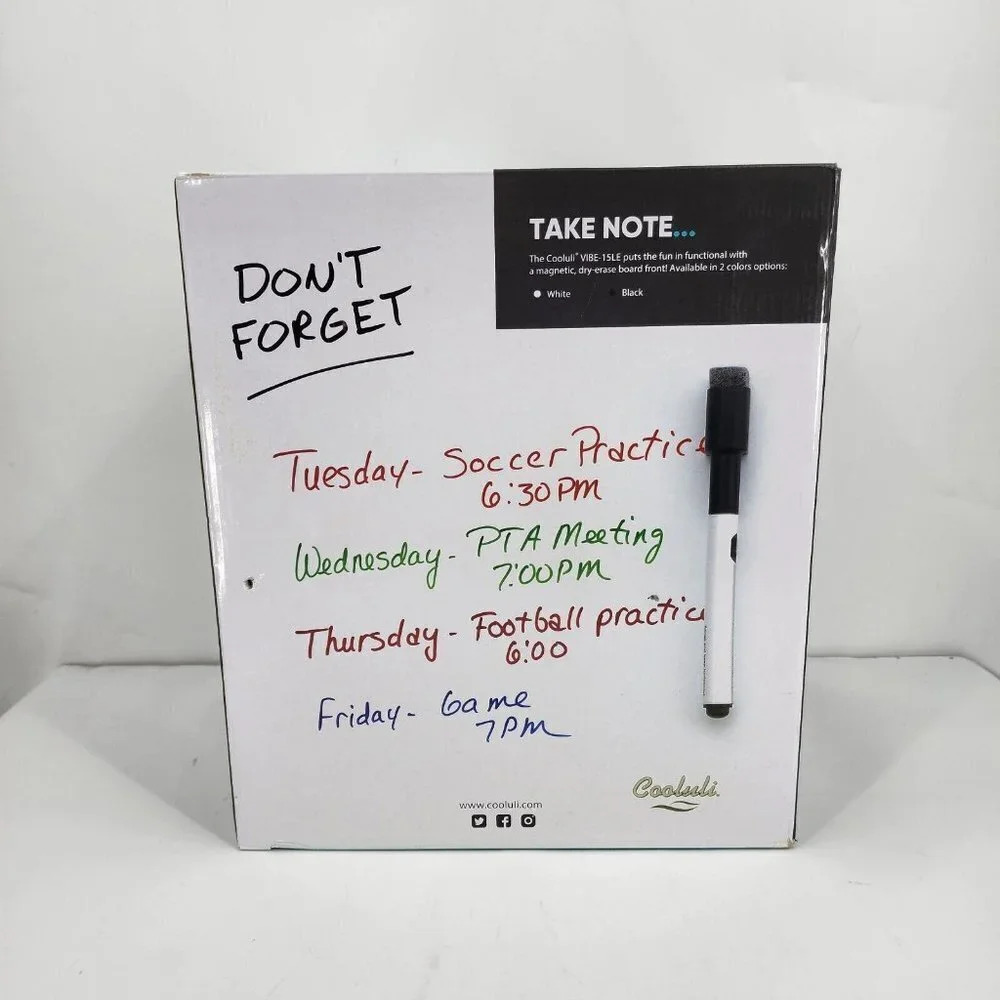 DON'T
FORGET
TAKE NOTE...
The Cooluli® VIBE-15LE puts the fun in functional with
a magnetic, dry-erase board front! Available in 2 colors options:
White Black
Tuesday- Soccer Practice
6:30PM
Wednesday- PTA Meeting
7:00PM
Thursday- Football practic
6:00
Friday- Game
7PM
Cooluli.
www.cooluli.com